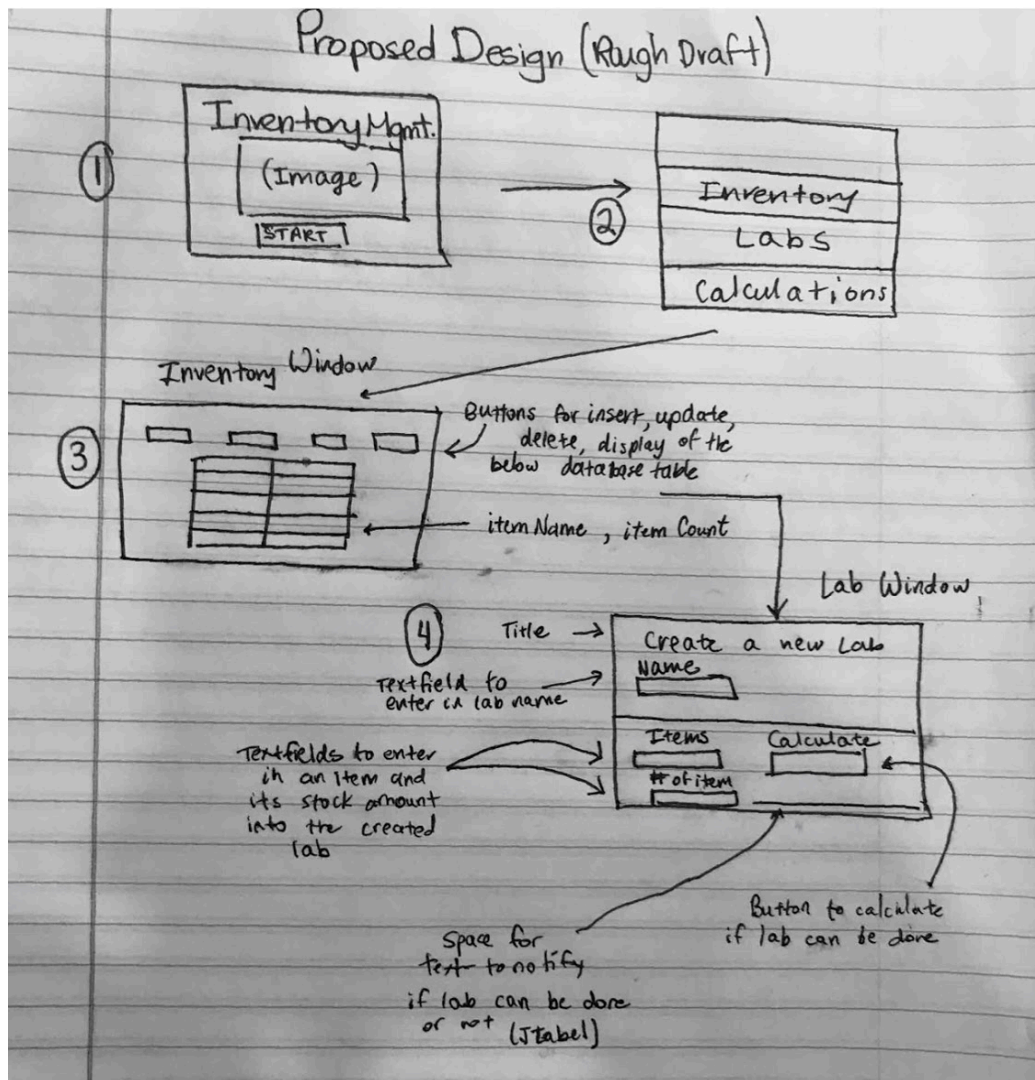 Proposed Design (Rough Draft)
1
Inventory Mgmt.
(Image)
START
2
Inventory
Labs
Calculations
Inventory Window
3
Buttons for insert, update,
delete, display of the
below database table
itemName, itemCount
Lab Window
4
Title
Create a new Lab
Name
Textfield to
enter in lab name
Items
Calculate
# of item
Textfields to enter
in an item and
its stock amount
into the created
lab
Button to calculate
if lab can be done
Space for
text to notify
if lab can be done
or not (JLabel)